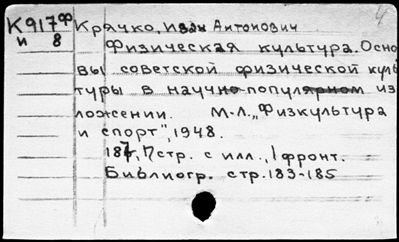 К917ф Крячко, Иван Антонович
и 8 Физическая культура. Осно
вы советской физической куль
туры в научно-популярном из
ложении. М.-Л., "Физкультура
и спорт", 1948.
187, 17 стр. с илл., 1 фронт.
Библиогр. стр. 183-185